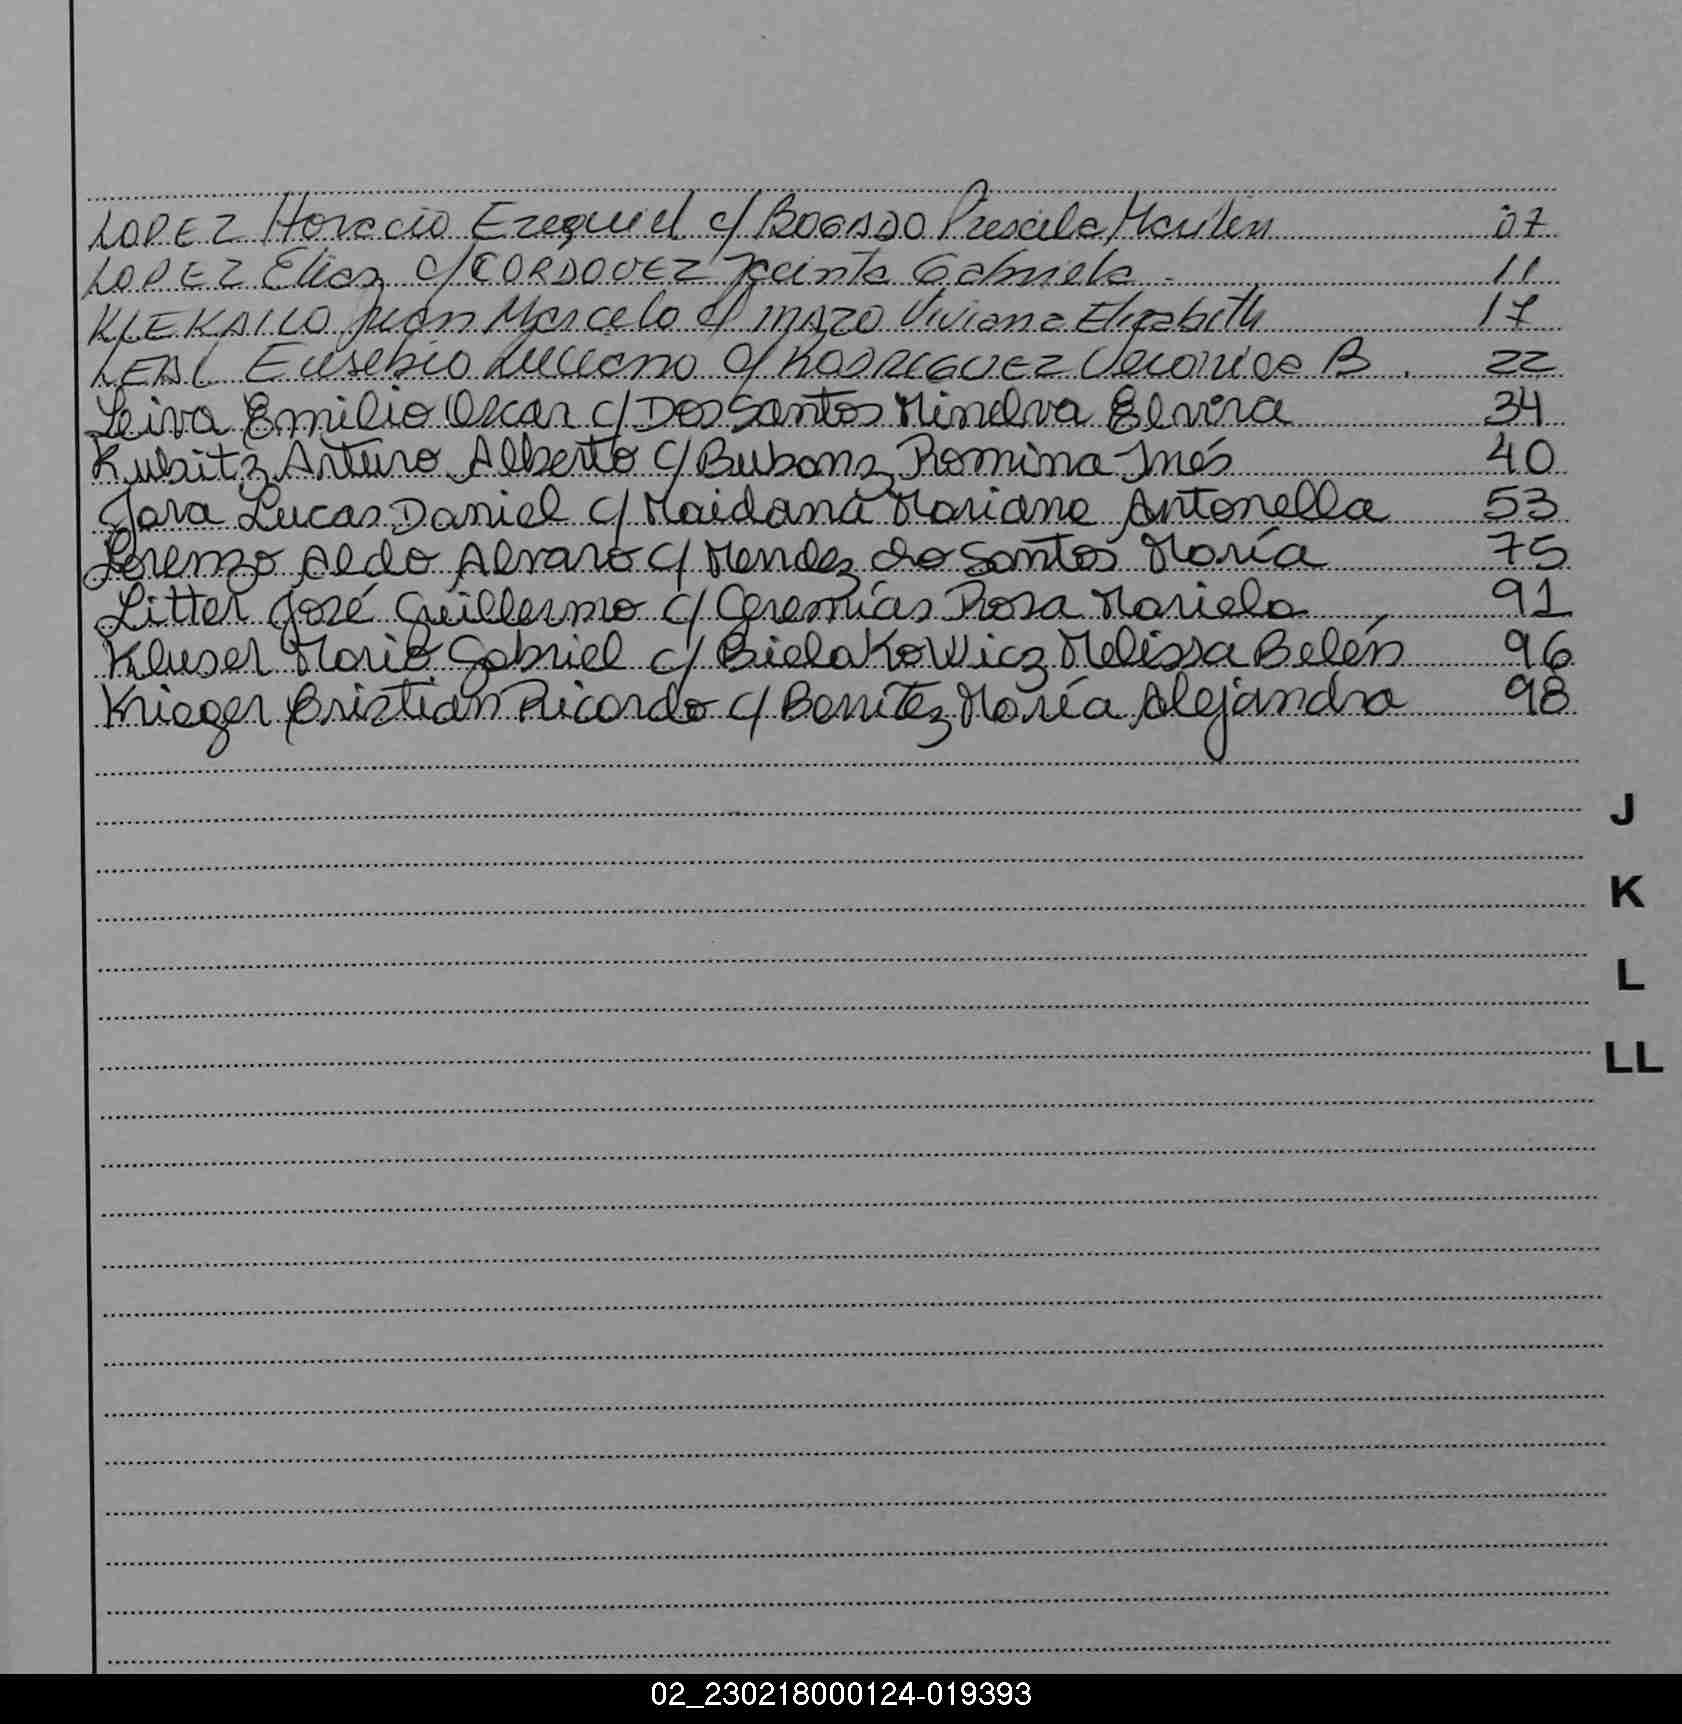 LOPEZ Horacio Ezequiel c/ BOGADO Priscila Marilen 07
LOPEZ Elias c/ CORDOVEZ Jacinta Gabriela 11
KLEKAILO Juan Marcelo c/ MAZO Viviana Elizabeth 17
LEAL Eusebio Luciano c/ RODRIGUEZ Veronica B. 22
Leiva Emilio Oscar c/ Dos Santos Minelva Elvira 34
Kubitz Arturo Alberto c/ Bubanz Romina Inés 40
Jara Lucas Daniel c/ Maidana Mariana Antonella 53
Lorenzo Aldo Alvaro c/ Mendez do Santos María 75
Litter José Guillermo c/ Geremías Rosa Mariela 91
Kluser Mario Gabriel c/ Bielakowicz Melissa Belén 96
Krieger Cristian Ricardo c/ Benítez María Alejandra 98
J
K
L
LL
02_230218000124-019393